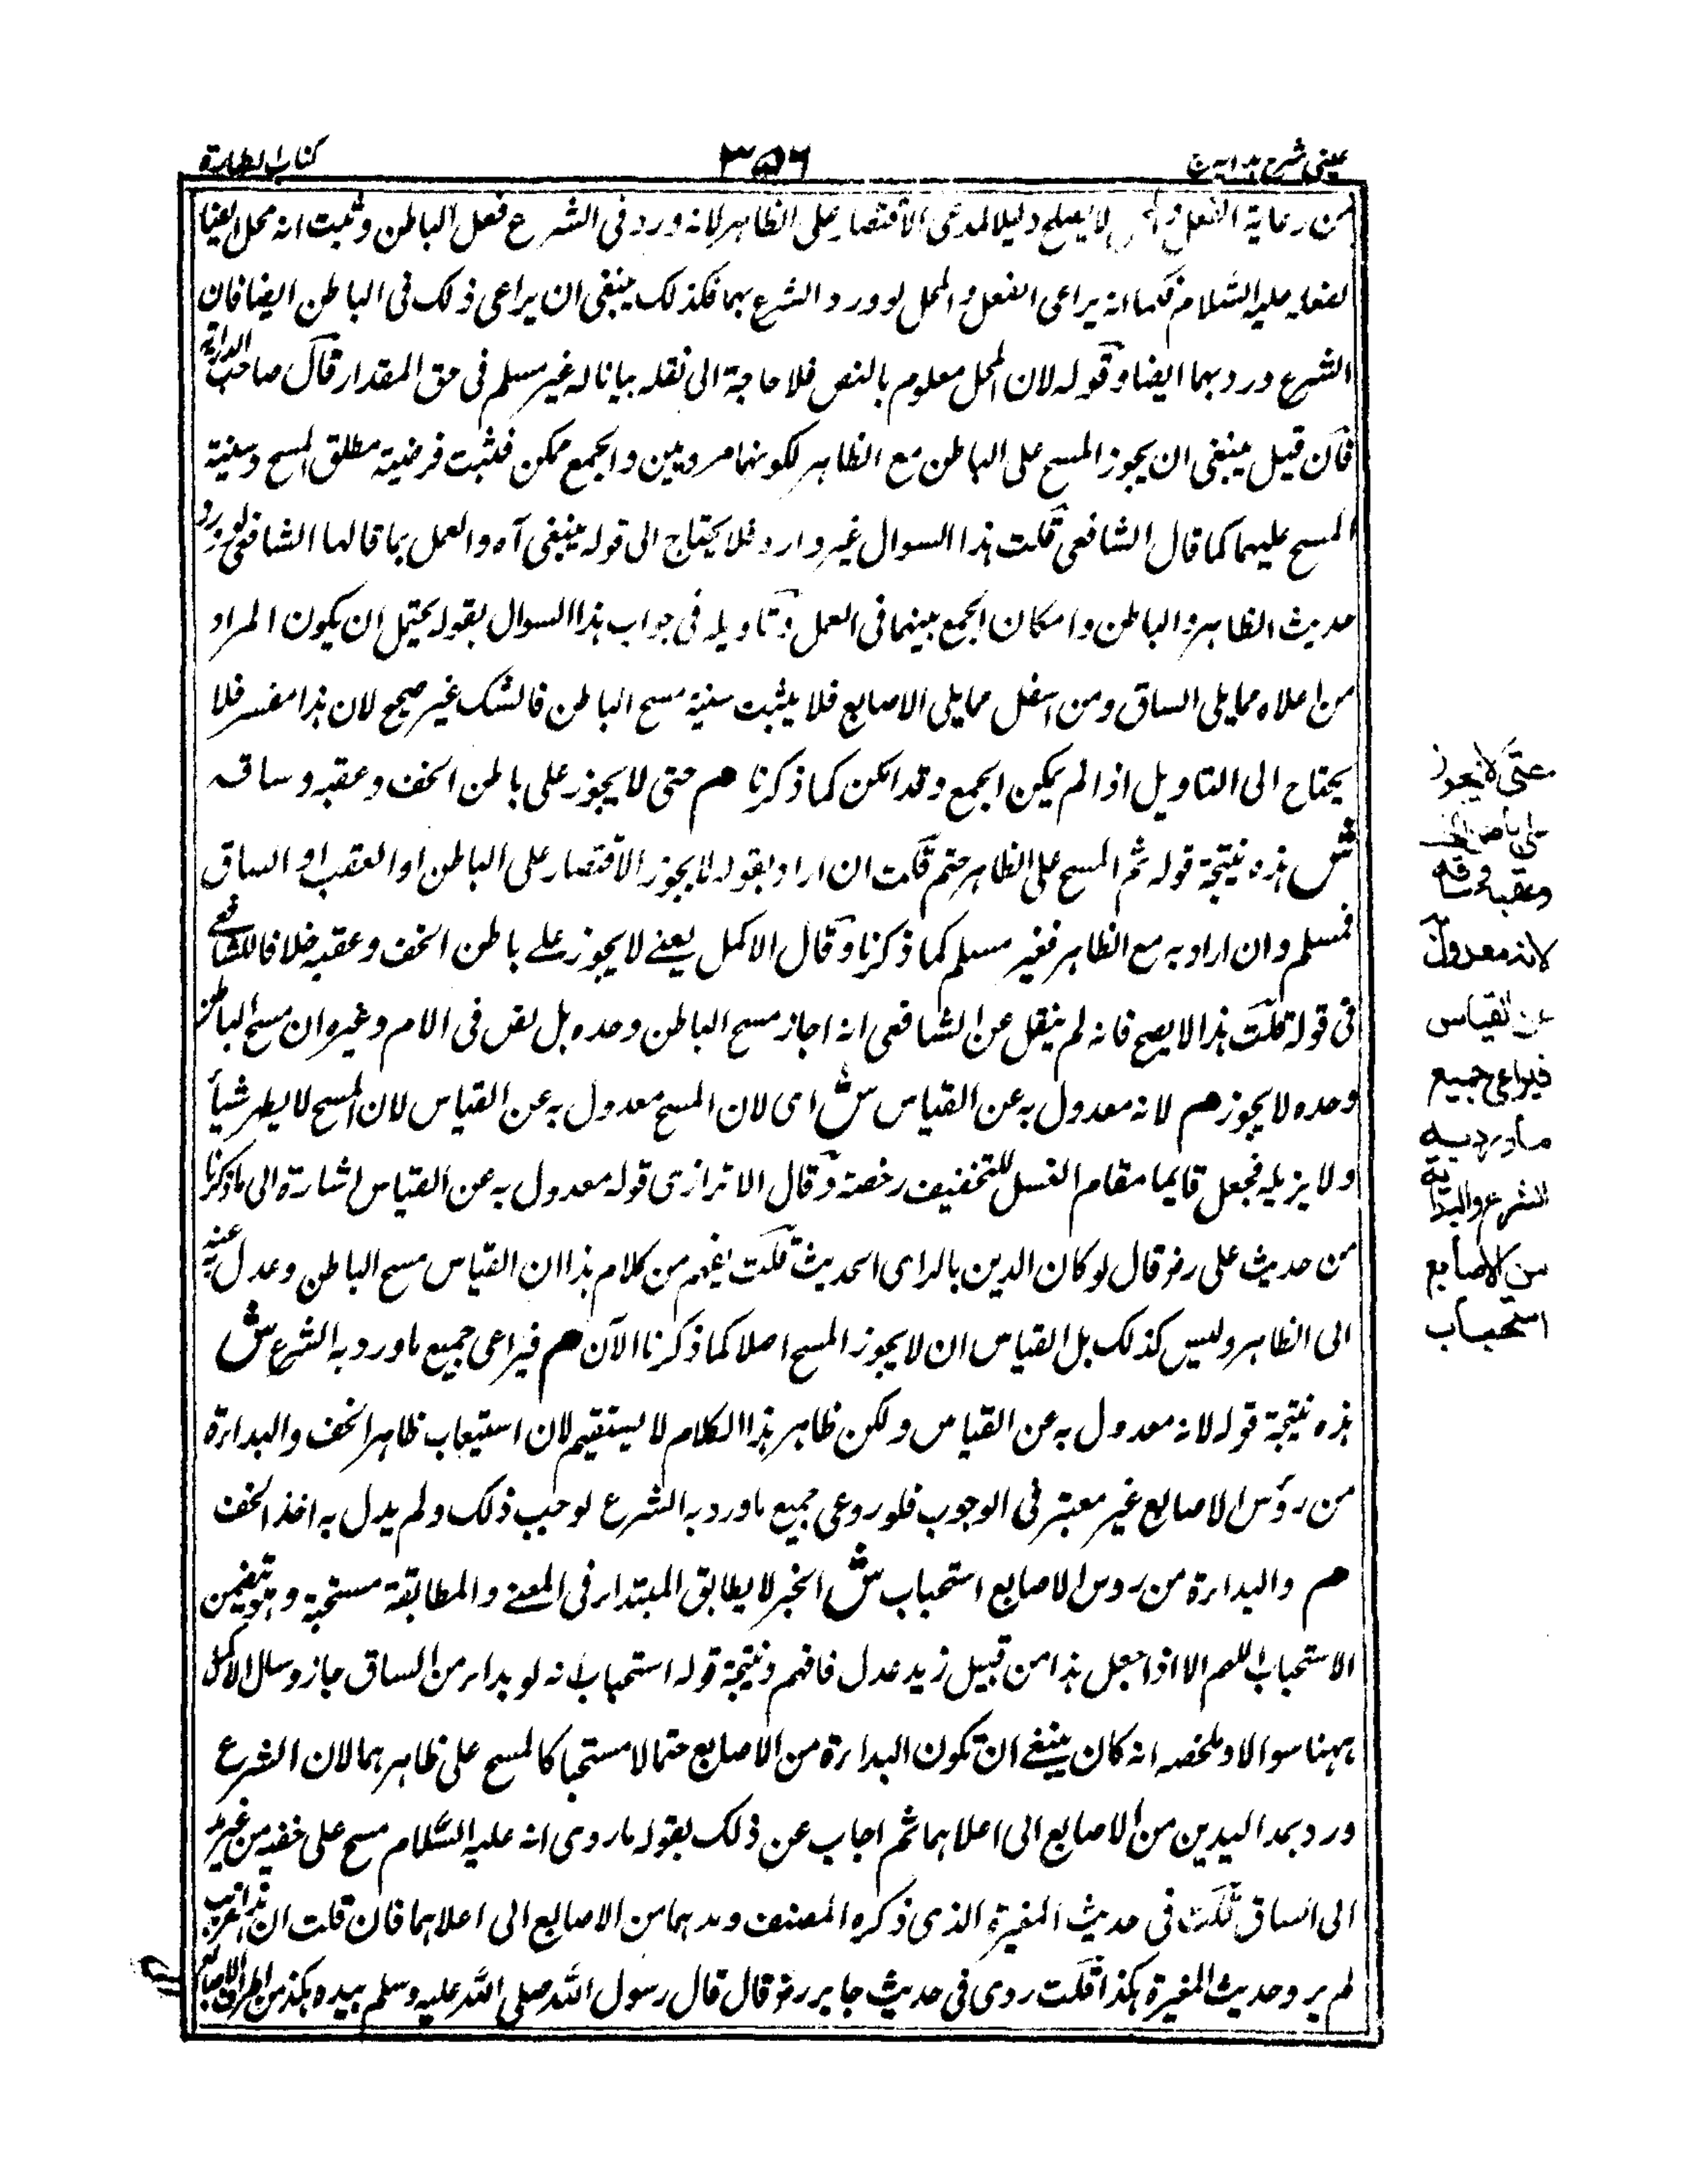 عينى شرح هدايه ج
٣٥٦
كتاب الطهارة
من رعاية الفعل لا يصلح دليلا لمدعى الاقتصار على الظاهر لانه ورد فى الشرع فعل الباطن وثبت انه محل ايضا
لفعله عليه السلام فكما انه يراعى الفعل والمحل لورود الشرع بهما فكذلك ينبغى ان يراعى ذلك فى الباطن ايضا فان
الشرع ورد بهما ايضا وقوله لان المحل معلوم بالنص فلا حاجة الى نقله بيانا له غير مسلم فى حق المقدار قال صاحب الدراية
فان قيل ينبغى ان يجوز المسح على الباطن مع الظاهر لكونهما مرويين والجمع ممكن فثبت فرضية مطلق المسح وسنية
المسح عليهما كما قال الشافعى قلت هذا السوال غير وارد فلا يحتاج الى قوله ينبغى آه والعمل بما قالها الشافعى لورود
حديث الظاهر والباطن وامكان الجمع بينهما فى العمل وتاويله فى جواب هذا السوال بقوله يحتمل ان يكون المراد
من اعلاه مما يلى الساق ومن اسفل مما يلى الاصابع فلا يثبت سنية مسح الباطن فالشك غير صحيح لان هذا مفسر فلا
يحتاج الى التاويل اذا لم يمكن الجمع وقد امكن كما ذكرنا هم حتى لا يجوز على باطن الخف وعقبه وساقه
ش هذه نتيجة قوله ثم المسح على الظاهر حتم قلت ان اراد بقوله لا يجوز الاقتصار على الباطن او العقب او الساق
فمسلم وان اراد به مع الظاهر فغير مسلم كما ذكرنا وقال الاكمل يعنے لا يجوز علے باطن الخف وعقبه خلافا للشافعى
فى قوله قلت هذا لا يصح فانه لم ينقل عن الشافعى انه اجاز مسح الباطن وحده بل نص فى الام وغيره ان مسح الباطن
وحده لا يجوز هم لانه معدول به عن القياس ش اى لان المسح معدول به عن القياس لان المسح لا يطهر شيأ
ولا يزيله فجعل قايما مقام الغسل للتخفيف رخصة وقال الاترازى قوله معدول به عن القياس اشارة الى ما ذكرنا
من حديث على رض قال لو كان الدين بالراى الحديث قلت يفهم من كلام هذا ان القياس مسح الباطن وعدل عنه
الى الظاهر وليس كذلك بل القياس ان لا يجوز المسح اصلا كما ذكرنا الآن هم فيراعى جميع ماورد به الشرع ش
هذه نتيجة قوله لانه معدول به عن القياس ولكن ظاهر هذا الكلام لا يستقيم لان استيعاب ظاهر الخف والبداءة
من رؤس الاصابع غير معتبر فى الوجوب فلو روعى جميع ماورد به الشرع لوجب ذلك ولم يدل به اخذ الخف
هم والبداءة من روس الاصابع استحباب ش الخبر لا يطابق المبتدا فى المعنے والمطابقة مستحبة وهو يتضمن
الاستحباب اللهم الا اذا جعل هذا من قبيل زيد عدل فافهم ونتيجة قوله استحباب انه لو بدا من الساق جاز وسال الاكمل
ههنا سوالا وملخصه انه كان ينبغے ان تكون البداءة من الاصابع حتما لا مستحبا كالمسح على ظاهرهما لان الشرع
ورد بمد اليدين من الاصابع الى اعلاهما ثم اجاب عن ذلك بقوله ما روى انه عليه السلام مسح على خفيه من غير مد
الى الساق قلت فى حديث المغيرة الذى ذكره المصنف ومدهما من الاصابع الى اعلاهما فان قلت ان
لم يرو حديث المغيرة هكذا قلت روى فى حديث جابر رض قال قال رسول الله صلى الله عليه وسلم بيده هكذا من اطراف الاصابع
حتى لا يجوز
على باطن الخف
وعقبه وساقه
لانه معدول به
عن القياس
فيراعى جميع
ماورد به
الشرع والبداية
من الاصابع
استحباب